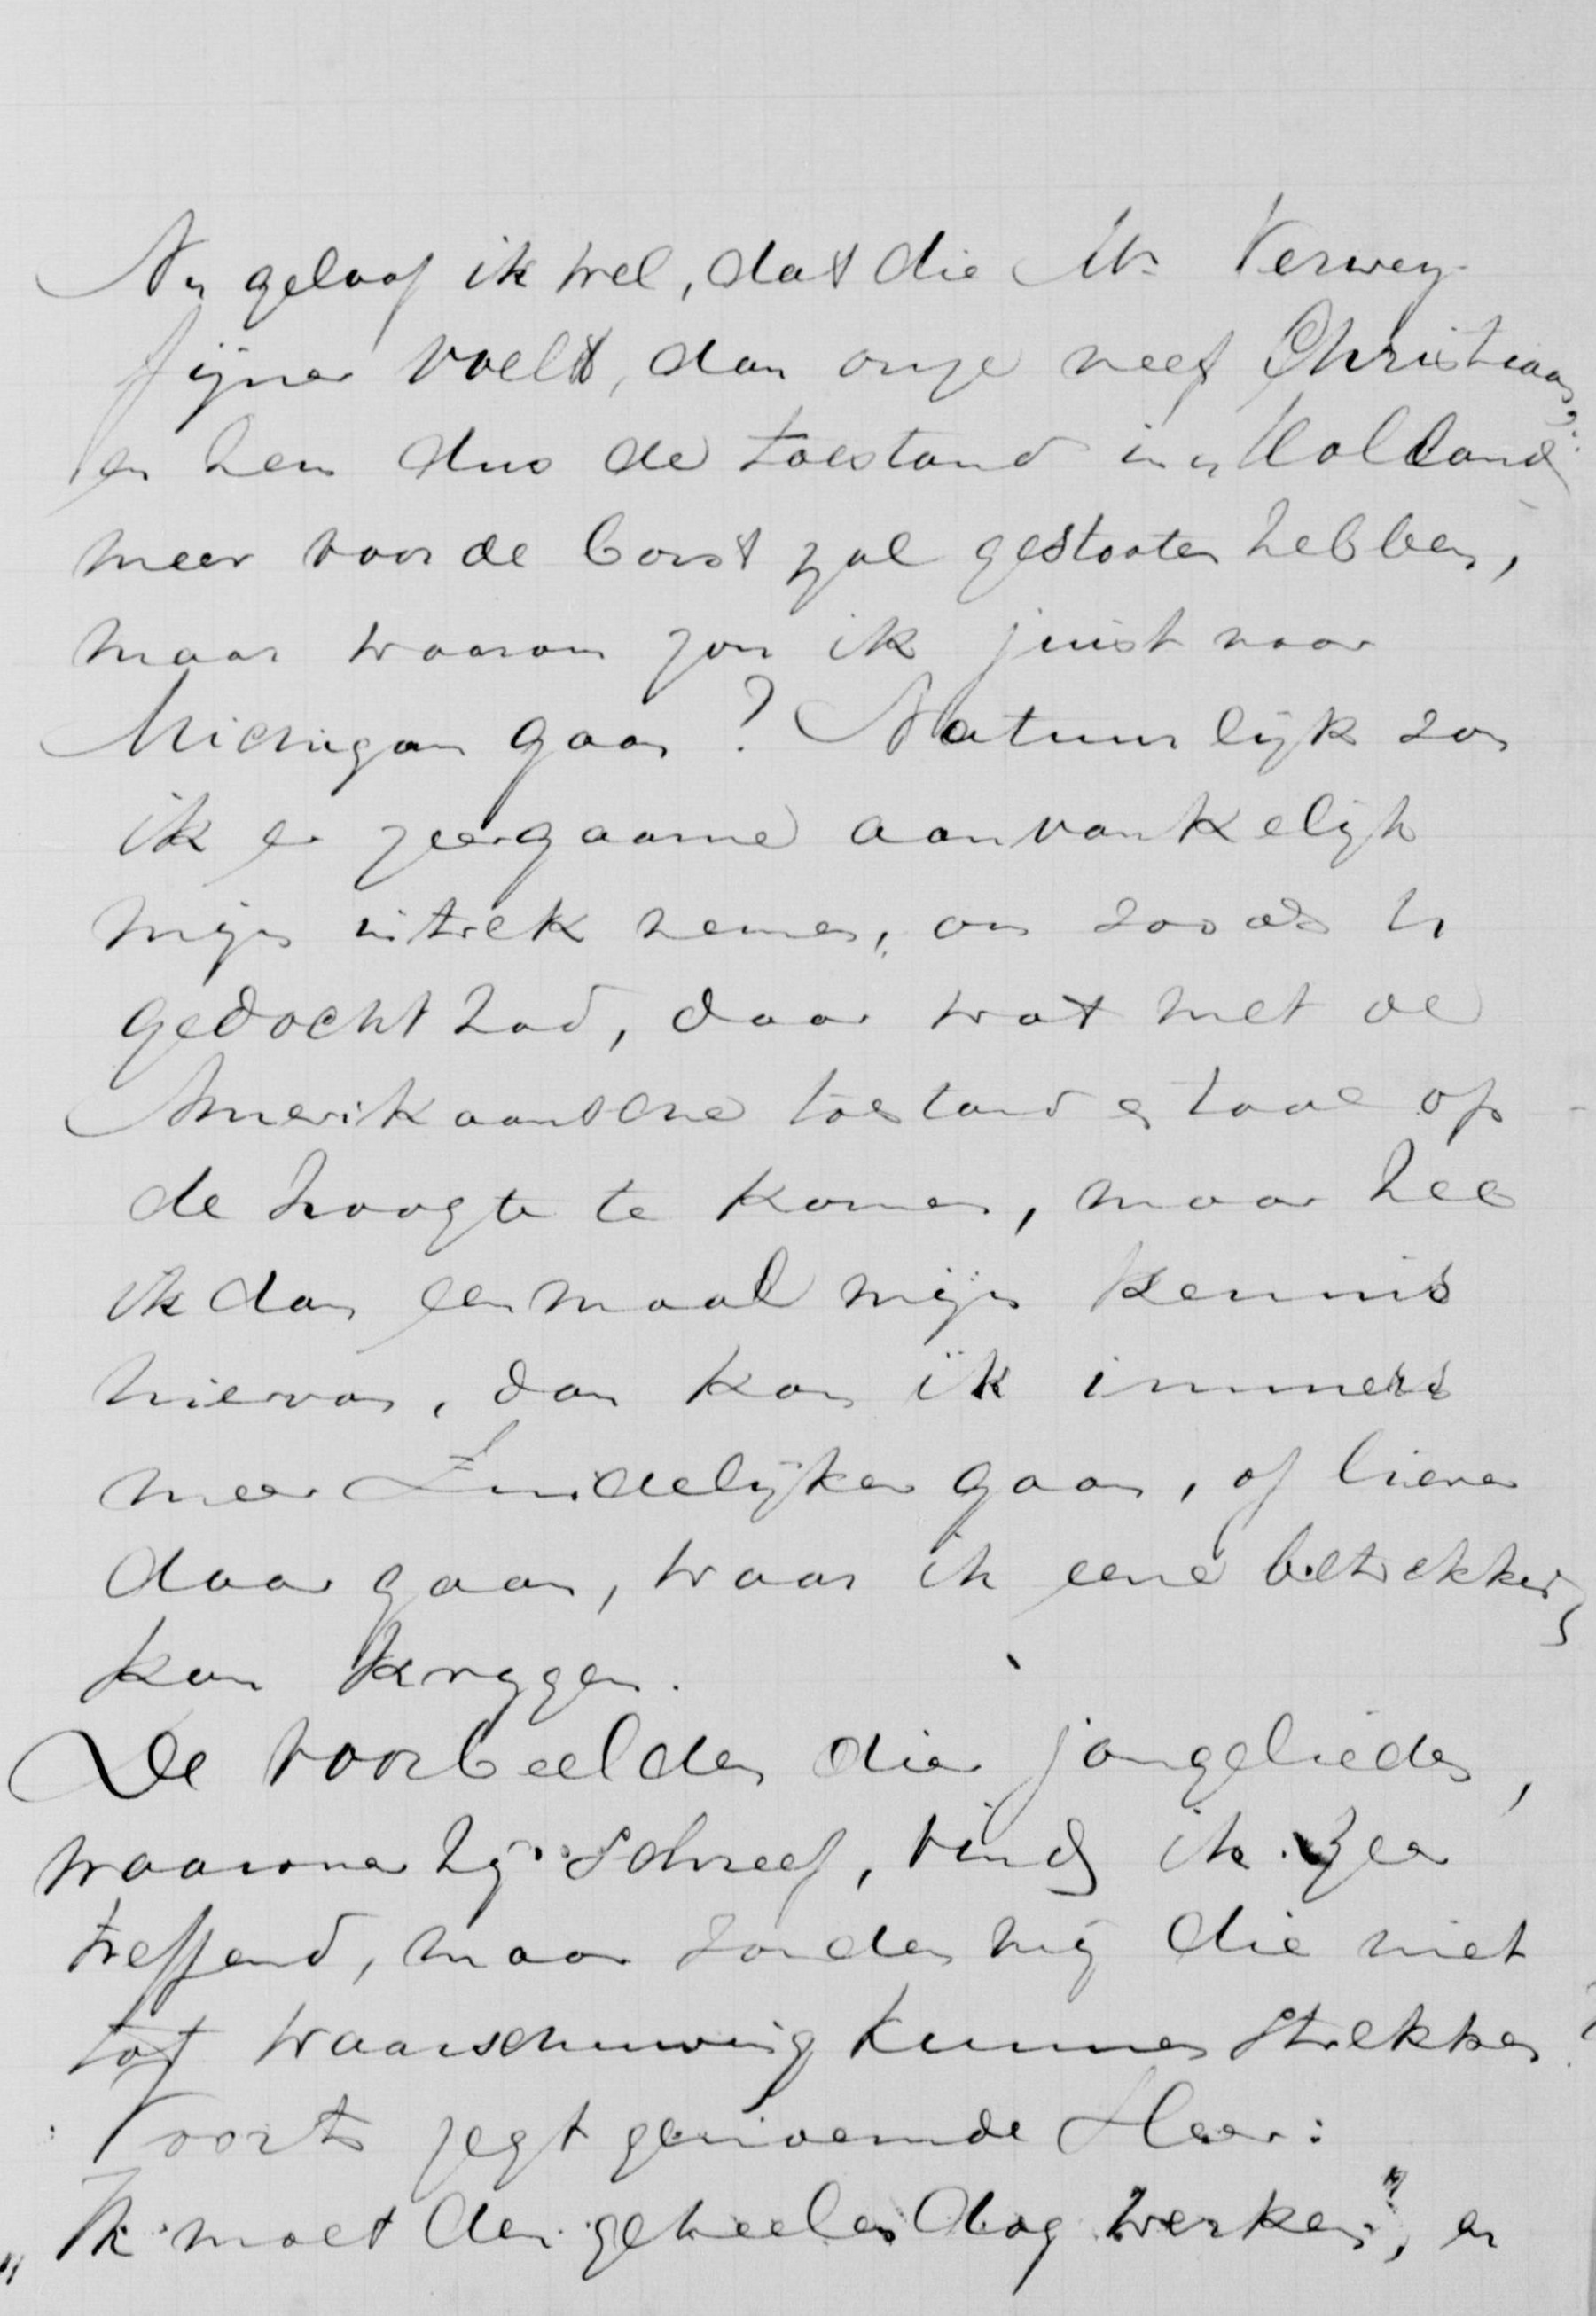 Nu geloof ik wel, dat die Mr Verwey
fijner voelt, dan onze neef Christiaan,
en hem dus de toestand in Holland
meer voor de borst zal gestooten hebben,
maar waarom zou ik juist naar
Michigan gaan? Natuurlijk zou
ik er zeer gaarne aanvankelijk
mijn intrek nemen, om zooals U
gedacht had, daar wat met de
Amerikaansche toestand en taal op
de hoogte te komen, maar heb
ik dan eenmaal mijn kennis
hiervan, dan kan ik immers
meer Zuidelijker gaan, of liever
daar gaan, waar ik eene betrekking
kan krygen.
De voorbeelden dier jongelieden,
waarover hij schreef, vind ik zeer
treffend, maar zouden mij die niet
tot waarschuwing kunnen strekken?
Voorts zegt genoemde Heer:
"Ik moet den geheelen dag werken", en